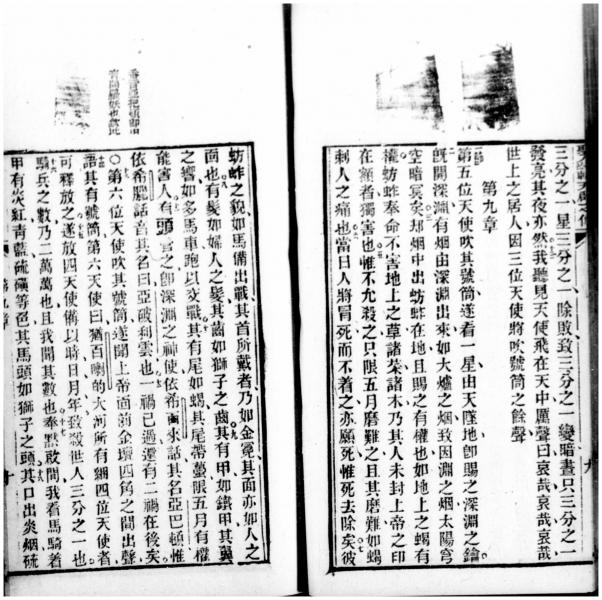 三分之一星三分之一餘敗致三分之一變暗晝只三分之一
發亮其夜亦然我聽見天使飛在天中厲聲曰哀哉哀哉哀哉
世上之居人因三位天使將吹號筒之餘聲
第九章
第五位天使吹其號筒遂看一星由天墜地卽賜之深淵之鑰
旣開深淵有烟由深淵出來如大爐之烟致因淵之烟太陽穹
空暗冥矣却烟中出蚄蚱在地且賜之有權也如地上之蝎有
權蚄蚱奉命不害地上之草諸菜諸木乃其人未封上帝之印
在額者獨害也惟不允殺之只限五月磨難之且其磨難如蝎
刺人之痛也當日人將冒死而不着之亦願死惟死去除矣彼
蚄蚱之貌如馬備出戰其首所戴者乃如金冕其面亦如人之
面也有髮如婦人之髮其齒如獅子之齒其有甲如鐵甲其翼
之響如多馬車跑以交戰其有尾如蝎其尾帶蠆限五月有權
能害人有頭宮之卽深淵之神使依希
依希臘話音其名曰亞破利雲也一禍已過還有二禍在後矣
第六位天使吹其號筒遂聞上帝面前金壇四角之間出聲
語其有號筒第六天使曰猶百喇的大河所有綑四位天使者
可釋放之遂放四天使備以時日月年致殺世人三分之一也
騎兵之數乃二萬萬也且我聞其數也奉默啟間我看馬騎着
甲有炎紅青藍硫磺等色其馬頭如獅子之頭其口出炎烟硫
第九章